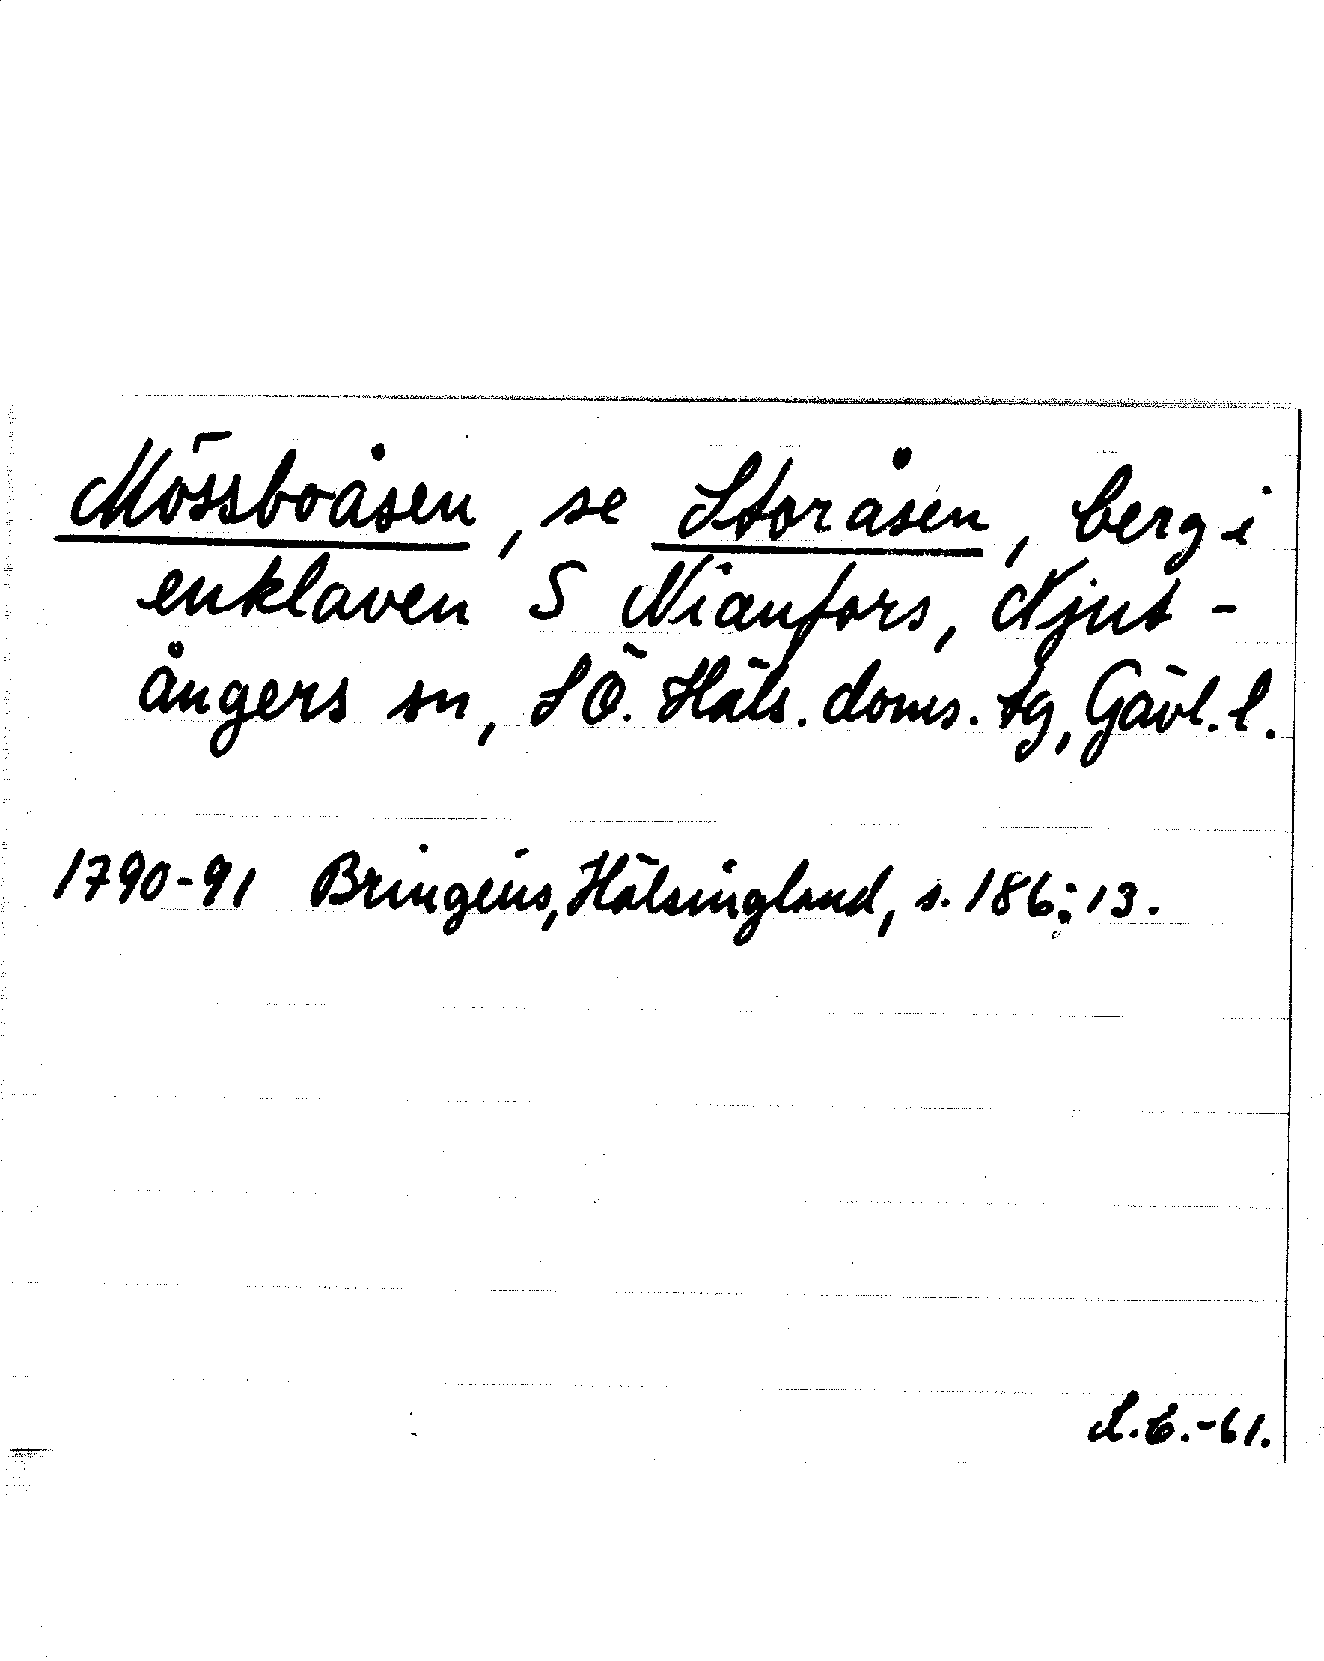 Mössboåsen, se Storåsen, berg i
enklaven S Nianfors, Njut-
ångers sn, SÖ. Häls. doms. tg, Gävl. l.
1790-91 Bringéus, Hälsingland, s. 186:13.
S.E.-61.